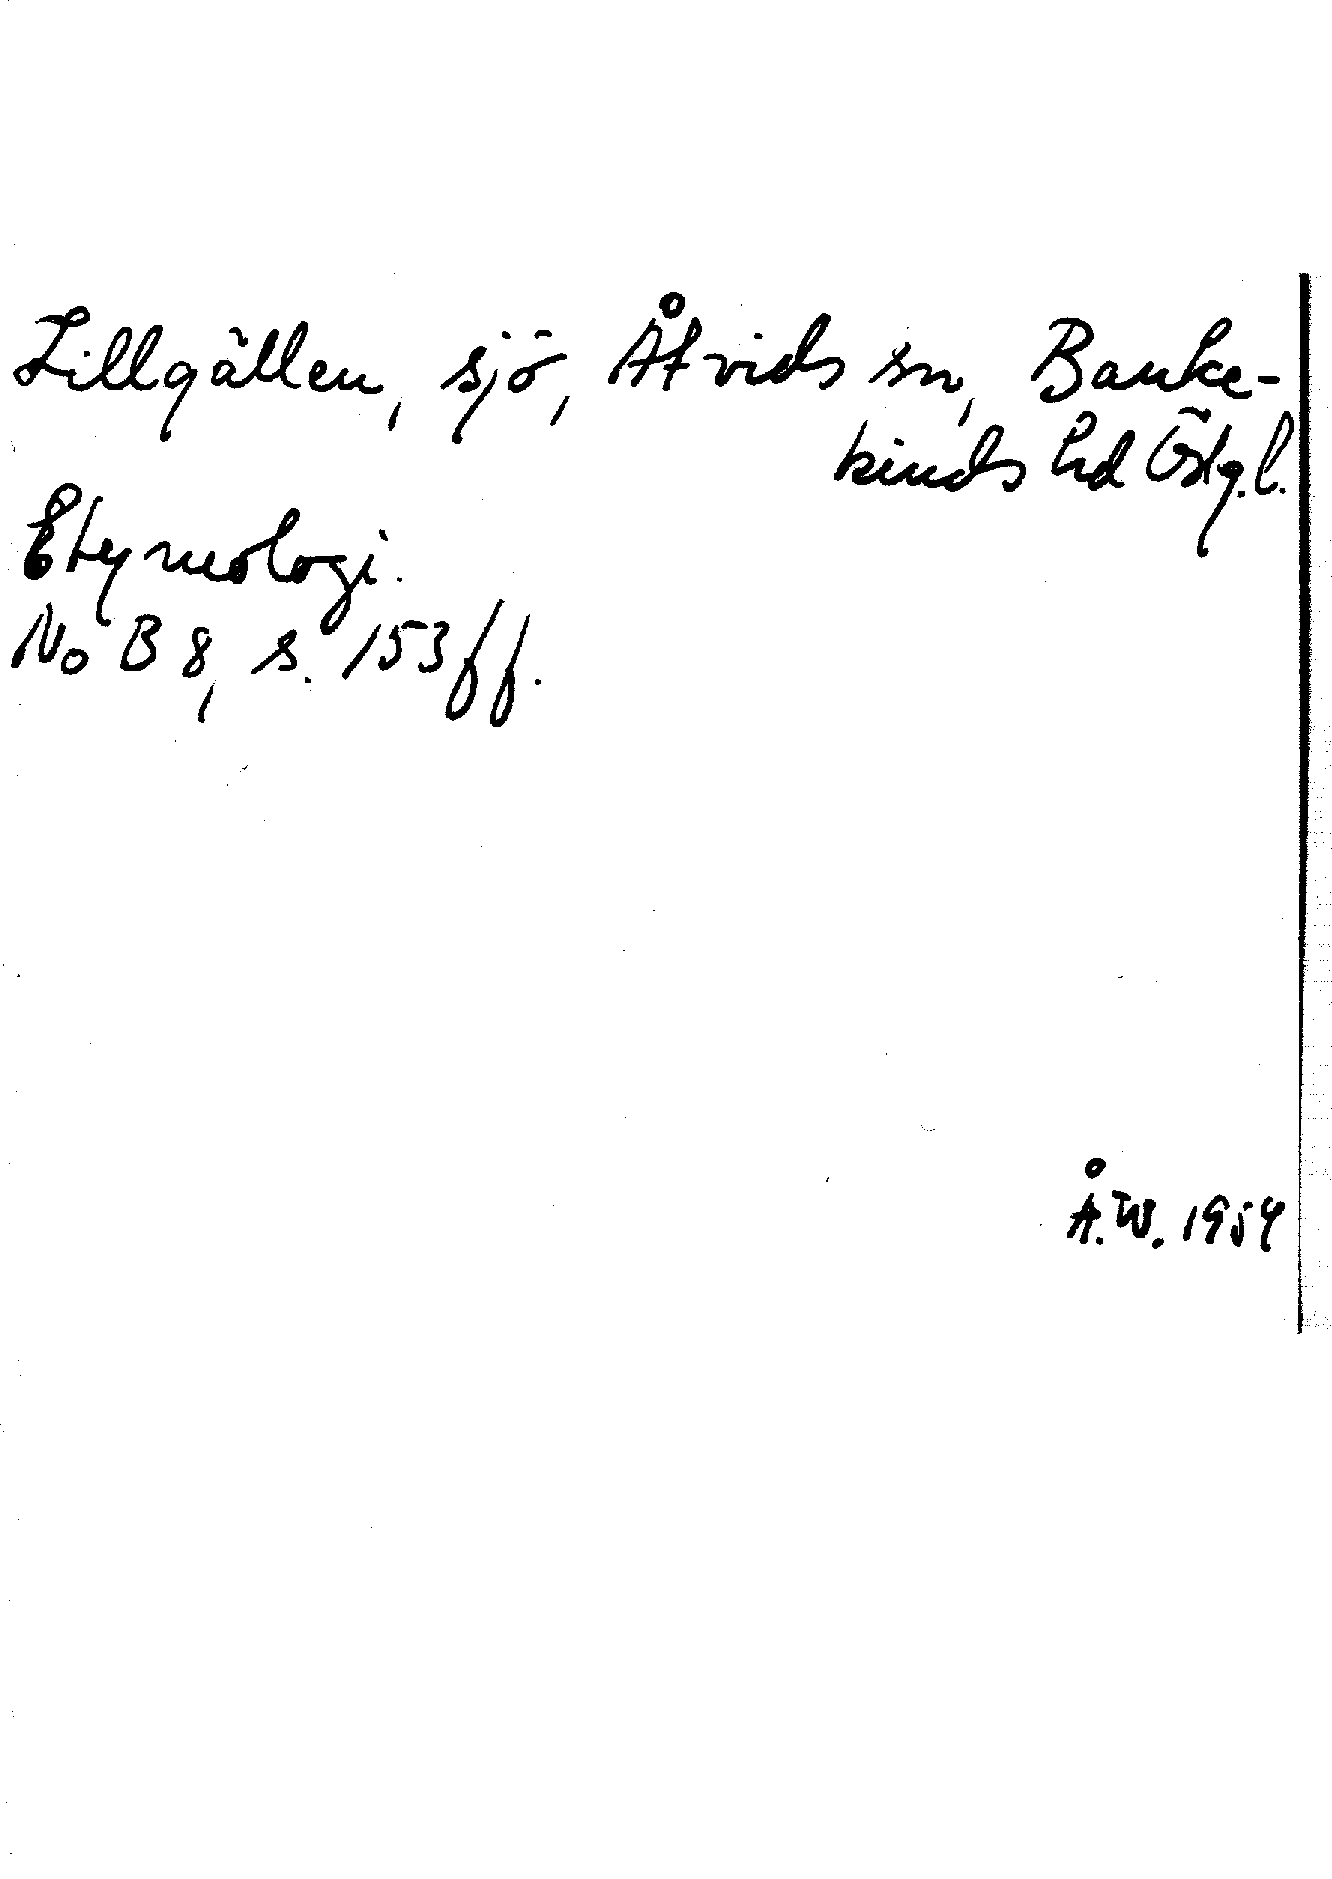 Lillgällen, sjö, Åtvids sn, Banke-
kinds hd Östg.l.
Etymologi.
NoB 8, s. 153 ff.
Å.W. 1954